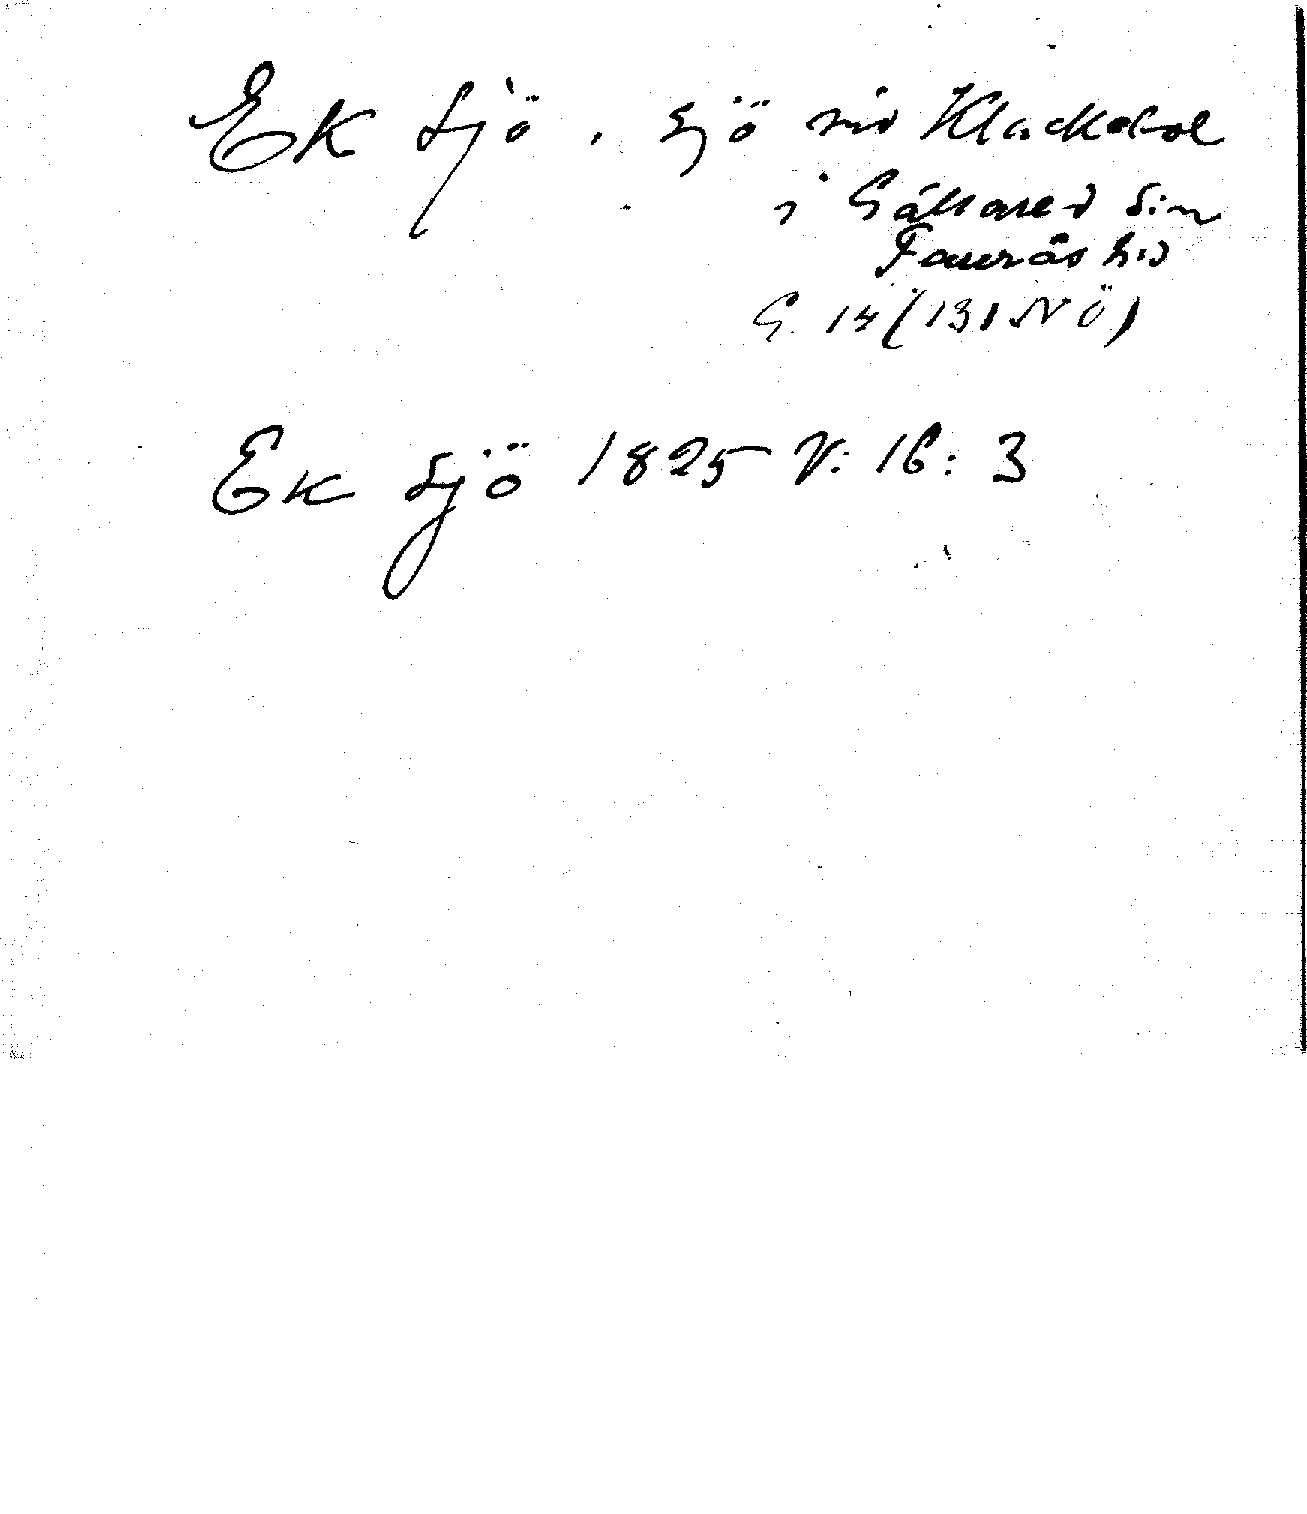 Ek sjö, sjö vid Klackebol
i Gällared sn
Faurås hd
G. 14 (131 NÖ)
Ek sjö 1825 V: 16: 3